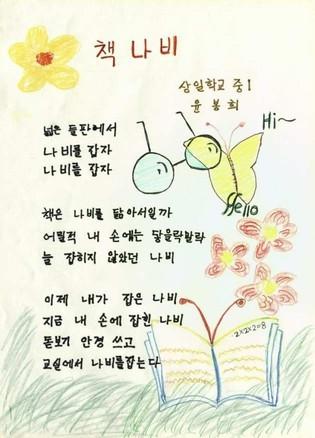 책 나비
삼일학교 중1
윤봉희
Hi~
넓은 들판에서
나비를 잡자
나비를 잡자
Hello
책은 나비를 닮아서일까
어릴적 내 손에는 닿을락말락
늘 잡히지 않았던 나비
이제 내가 잡은 나비
지금 내 손에 잡힌 나비
돋보기 안경 쓰고
교실에서 나비를잡는다